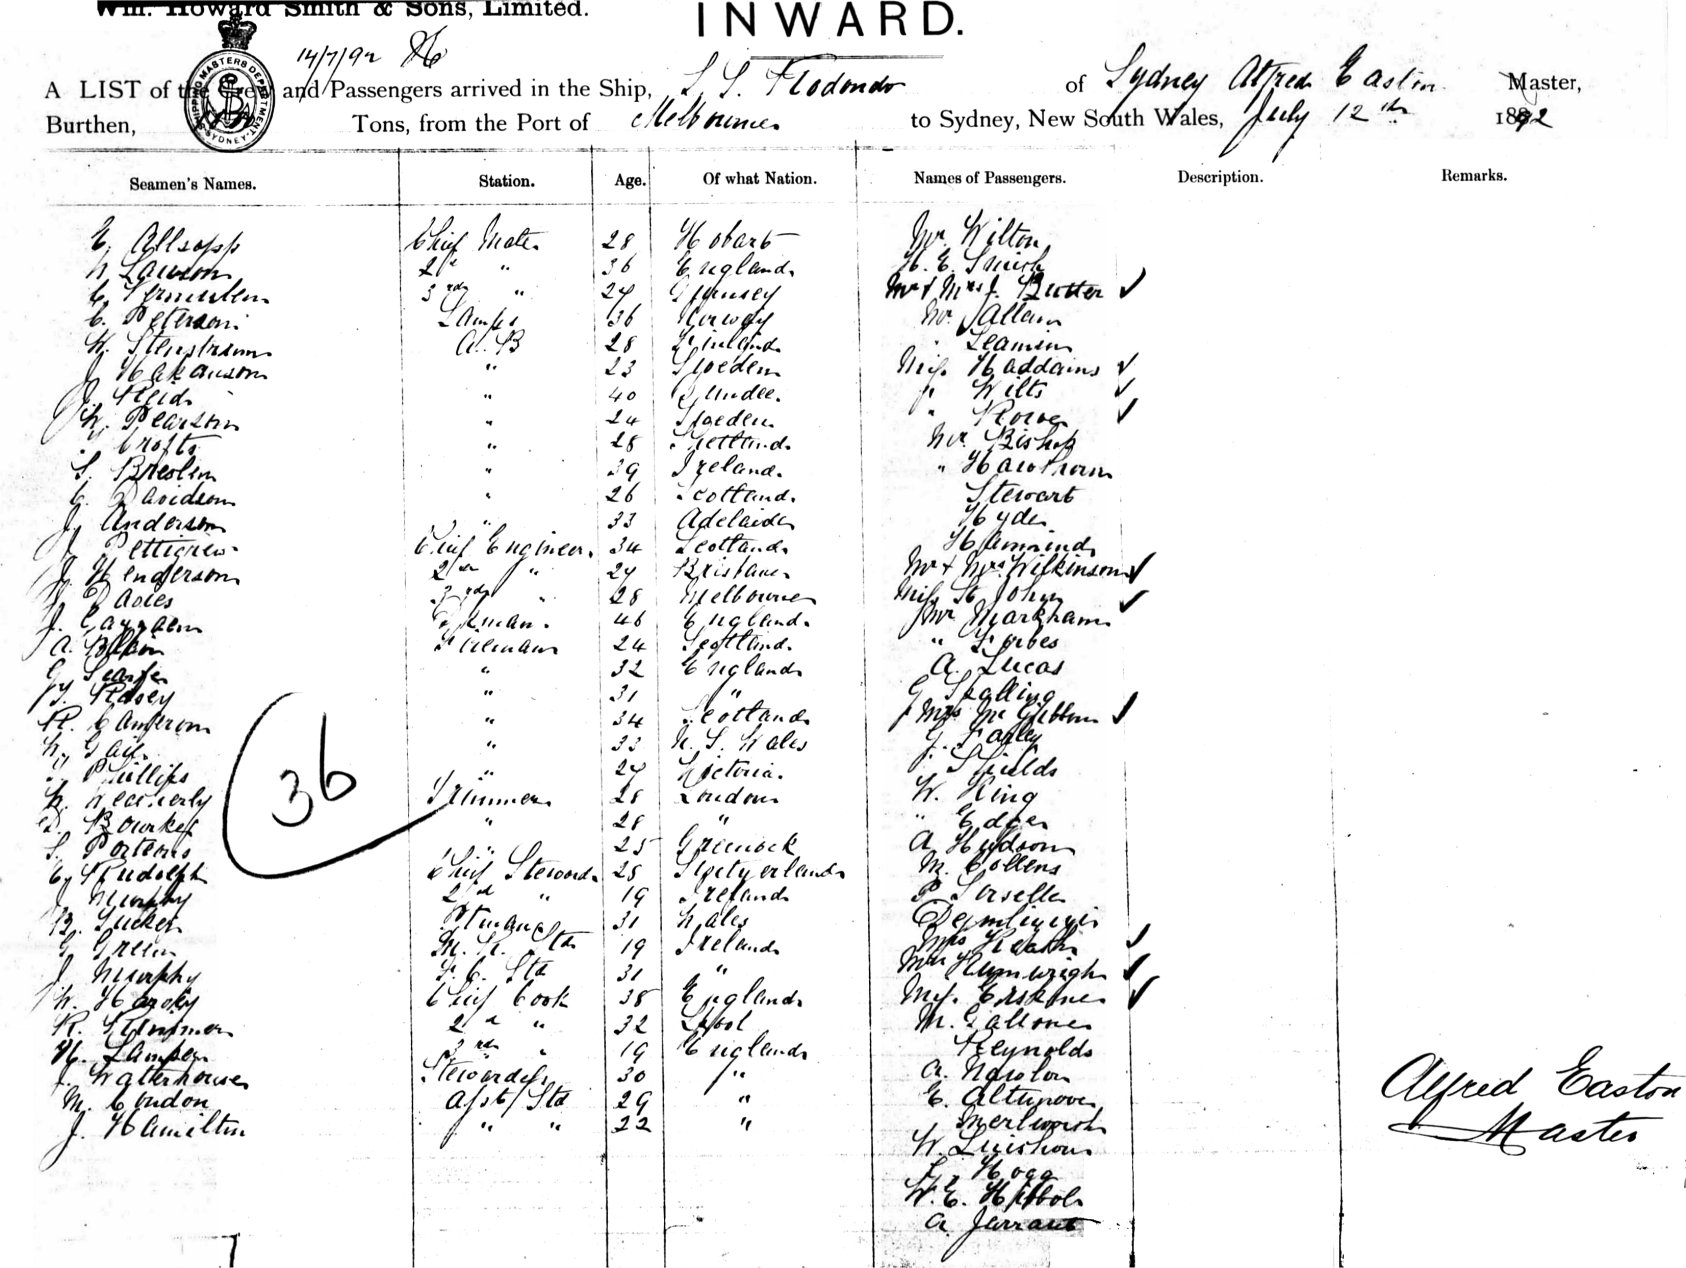 Wm. Howard Smith & Sons, Limited.
INWARD.
14/7/92
A LIST of the Crew and Passengers arrived in the Ship, S. S. Rodondo of Sydney Alfred Easton Master,
Burthen, Tons, from the Port of Melbourne to Sydney, New South Wales, July 12th 1892
SHIPPING MASTERS DEPARTMENT SYDNEY
Seamen's Names. Station. Age. Of what Nation. Names of Passengers. Description. Remarks.
E. Allsopp Chief Mate 28 Hobart Mr Wilton
W Lawson 2d " 36 England H. E. Smith
C. 3rd " 24 Guernsey Mr & Mrs J. Butter ✓
C. Peterson Lamps 36 Norway Mr. Allan
W. Stenstrom A. B 28 Finland "
J Hakanson " 23 Sweden Miss Haddams ✓
J. Reid " 40 Dundee " Wilts ✓
W. Pearson " 24 Sweden " Rowe ✓
Crofts " 28 Shetland Mr. Bishop
S. Breslin " 39 Ireland " Hawthorn
C. Davidson " 26 Scotland Stewart
J. Anderson " 33 Adelaide Hyde
J. Pettigrew Chief Engineer 34 Scotland Hammond
J. Henderson 2nd " 24 Brisbane Mr & Mrs Wilkinson ✓
J Eades 3rd " 28 Melbourne Miss St John ✓
J. 46 England Mr Markham
A. Blain Fireman 24 Scotland " Forbes
G " 32 England A. Lucas
J. Rosey " 31 " G Stalling
R. Cameron " 34 Scotland Mrs McGibbon ✓
W. Gail " 33 N. S. Wales J. Farley
J. Phillips " 24 Victoria J. Shields
W. Weatherly Trimmer 28 London W. King
Bourke " 28 " " Edgar
S. Porteous " 25 Greenock A Hudson
C. Rudolph Chief Steward 28 Switzerland M. Collens
J Murphy 2nd " 19 Ireland P
B. Tucker 31 Wales
G Green M. R. Std 19 Ireland Mrs Heath ✓
J. Murphy F. C. Std 31 " Mrs ✓
W. Hardy Chief Cook 38 England Miss Erskine ✓
R. 2d " 32 L'pool M.
H. 3rd " 19 England Reynolds
J. Watterhouse Stewardess 30 " A.
M. Condon Asst Std 29 " E.
J. Hamilton " " 22 "
W.
Hogg
W. E.
A. Jarraut
36
Alfred Easton
Master